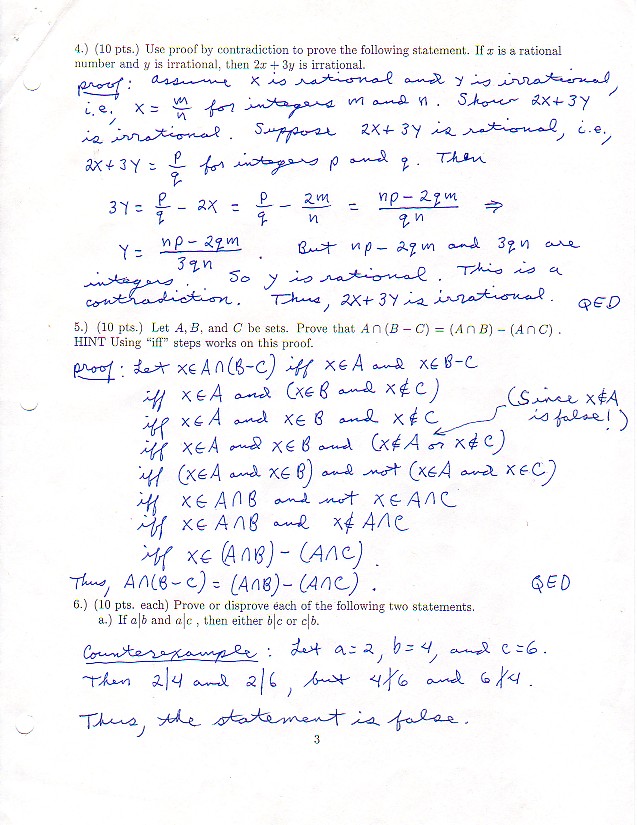 4.) (10 pts.) Use proof by contradiction to prove the following statement. If x is a rational
number and y is irrational, then 2x + 3y is irrational.
proof: assume x is rational and y is irrational,
i.e., x = m/n for integers m and n. Show 2x+3y
is irrational. Suppose 2x+3y is rational, i.e.,
2x+3y = p/q for integers p and q. Then
3y = p/q - 2x = p/q - 2m/n = (np-2qm)/(qn) ⇒
y = (np-2qm)/(3qn). But np-2qm and 3qn are
integers. So y is rational. This is a
contradiction. Thus, 2x+3y is irrational. QED
5.) (10 pts.) Let A, B, and C be sets. Prove that A ∩ (B − C) = (A ∩ B) − (A ∩ C) .
HINT Using "iff" steps works on this proof.
proof: Let x∈A∩(B-C) iff x∈A and x∈B-C
iff x∈A and (x∈B and x∉C)
iff x∈A and x∈B and x∉C
(Since x∉A
is false!)
iff x∈A and x∈B and (x∉A or x∉C)
iff (x∈A and x∈B) and not (x∈A and x∈C)
iff x∈A∩B and not x∈A∩C
iff x∈A∩B and x∉A∩C
iff x∈(A∩B)-(A∩C)
Thus, A∩(B-C) = (A∩B)-(A∩C). QED
6.) (10 pts. each) Prove or disprove each of the following two statements.
a.) If a|b and a|c , then either b|c or c|b.
Counterexample: Let a=2, b=4, and c=6.
Then 2|4 and 2|6, but 4∤6 and 6∤4.
Thus, the statement is false.
3